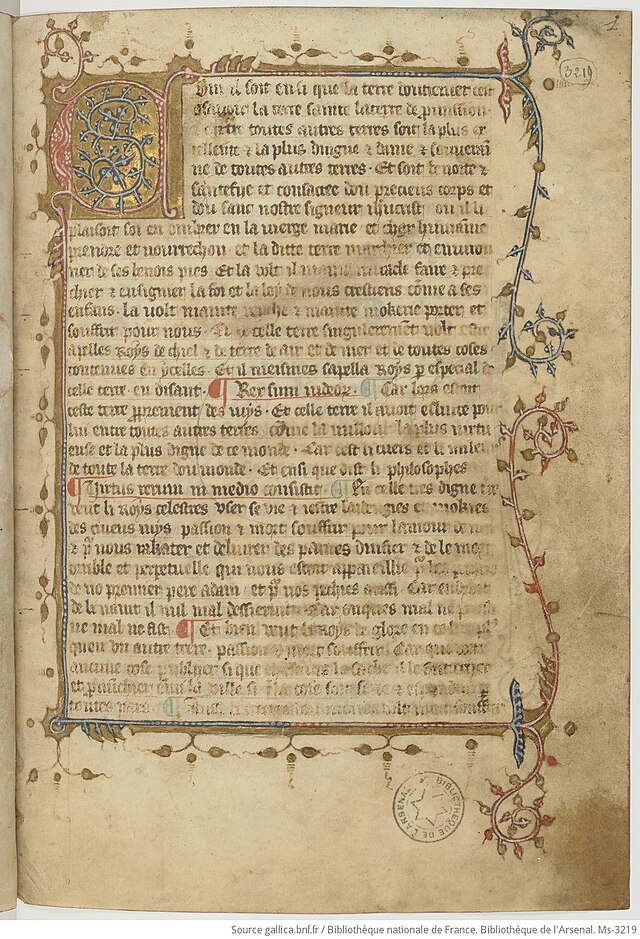 1
3219
Comme il soit ensi que la terre doultremer cest
assavoir la terre sainte la terre de promission
entre toutes autres terres soit la plus ex
cellente & la plus dingne & dame & souverai
ne de toutes autres terres · Et soit benoite &
saintefye et consacree dou precieus corps et
dou sanc nostre signeur ihucrist · ou il li
plaisoit soi en ombrer en la vierge marie et char humaine
prendre et nourrechon · et la ditte terre marchier et environ
ner de ses benois pies · Et la volt il maint miracle faire & pre
chier & ensignier la foi et la loy de nous crestiens come a ses
enfans · la volt mainte & mainte mokerie porter et
souffrir pour nous · Et celle terre singulerment volt estre
apelles Roys de chiel & de terre de air et de mer et de toutes coses
contenues en ycelles · Et il meismes sapella Roys p especial de
celle terre · en disant · ¶ Rex sum iudeor · ¶ Car lors estoit
ceste terre pprement des iuys · Et celle terre il avoit eslute pour
lui entre toutes autres terres · come la millour la plus vertu
euse et la plus digne de ce monde · Car cest li cuers et li milieu
de toute la terre dou monde · Et ensi que dist li philosophes
¶ Virtus rerum in medio consistit · ¶ En celle tres digne terre
veut li Roys celestres user se vie & laidenges et mokies
des crueus iuys passion & mort souffrir pour lamour de nous
& pour nous rakater et delivrer des paines dinfier & de le mort
orrible et perpetuelle qui nous estoit appareillie p les pechies
de no premier pere adam · et pour nos pechies aussi · Car
de li navit il nul mal desservit · Car onques mal ne pensa
ne mal ne fist · ¶ Et bien veut li Roys de glore en ce lieu pl
quen un autre terre · passion & mort souffrir · Car qui volt
aucune cose publyer si que chascuns le sache il le fait crier
et puischier en mi la ville si
toutes pars · ¶
BIBLIOTHÈQUE DE L'ARSENAL
Source gallica.bnf.fr / Bibliothèque nationale de France. Bibliothèque de l'Arsenal. Ms-3219